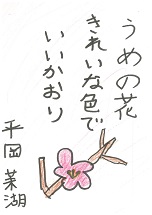 うめの花
きれいな色で
いいかおり
平岡菜湖